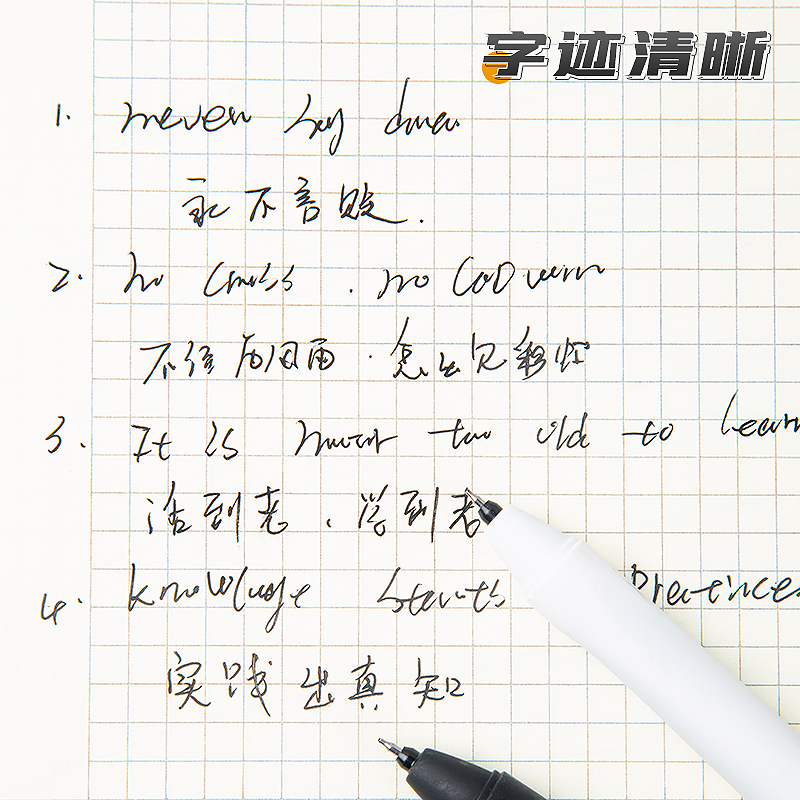 字迹清晰
1. never say die
永不言败.
2. no cross . no crown
不经历风雨 . 怎么见彩虹
3. It is never too old to learn
活到老、学到老
4. knowledge starts Practice
实践出真知